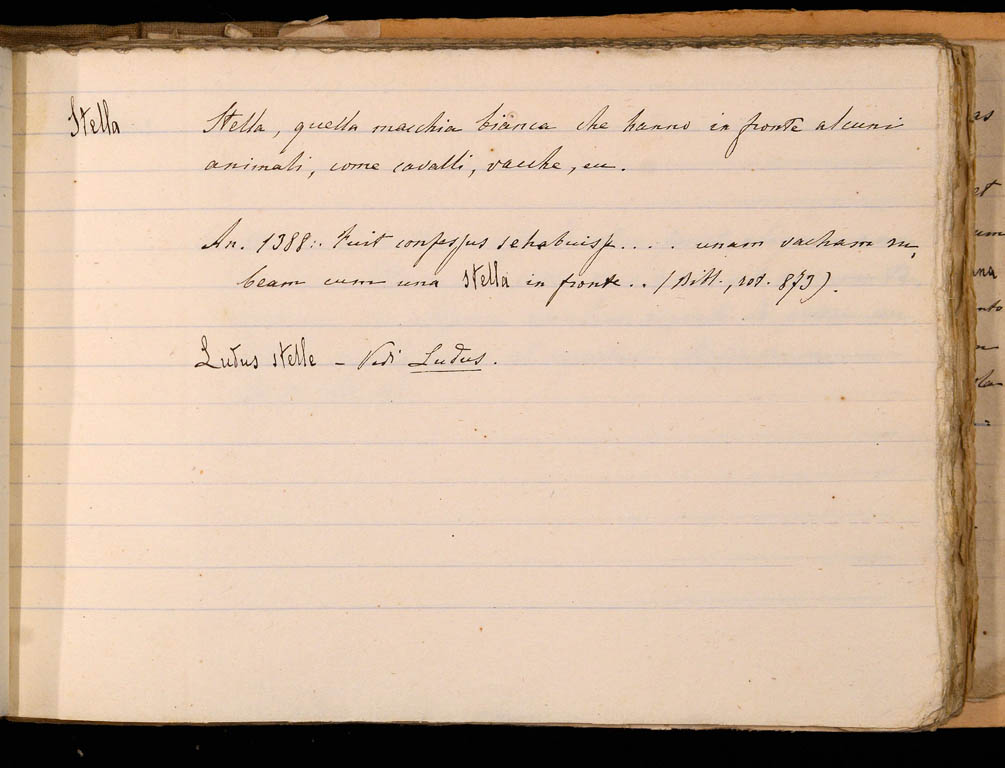 Stella
Stella, quella macchia bianca che hanno in fronte alcuni
animali, come cavalli, vacche, ecc.
An. 1388: Fuit confessus se habuisse.... unam vacham ru,
beam cum una stella in fronte.. (Bibl., rot. 873).
Ludus stelle - Vedi Ludus.
as
et
um
una
nto